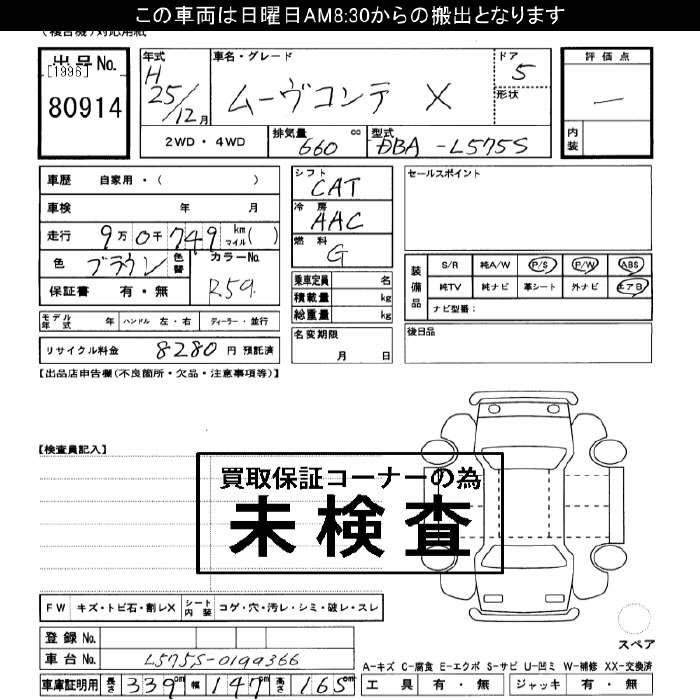 この車両は日曜日AM8:30からの搬出となります
(複合機)対応用紙
出品No.
[1996]
80914
年式
H
25/12月
車名・グレード
ムーヴコンテ X
ドア
5
形状
評価点
—
内装
2WD・4WD
排気量
660 cc
型式
DBA-L575S
車歴 自家用・( )
車検 年 月
走行 9万0千749 km マイル( )
色 ブラウン 色替 カラーNo. R59
保証書 有・無
シフト
CAT
冷房
AAC
燃料
G
セールスポイント
装備品
S/R 純A/W P/S P/W ABS
純TV 純ナビ 革シート 外ナビ エアB
ナビ型番:
乗車定員 名
積載量 kg
総重量 kg
モデル年式 年 ハンドル 左・右 ディーラー・並行
名変期限
月 日
後日品
リサイクル料金 8280 円 預託済
【出品店申告欄(不良箇所・欠品・注意事項等)】
【検査員記入】
買取保証コーナーの為
未検査
FW キズ・トビ石・割レX シート内装 コゲ・穴・汚レ・シミ・破レ・スレ
スペア
登録No.
車台No. L575S-0199366
A-キズ C-腐食 E-エクボ S-サビ U-凹ミ W-補修 XX-交換済
車庫証明用 長さ 339cm 幅 147cm 高さ 165cm
工具 有・無 ジャッキ 有・無